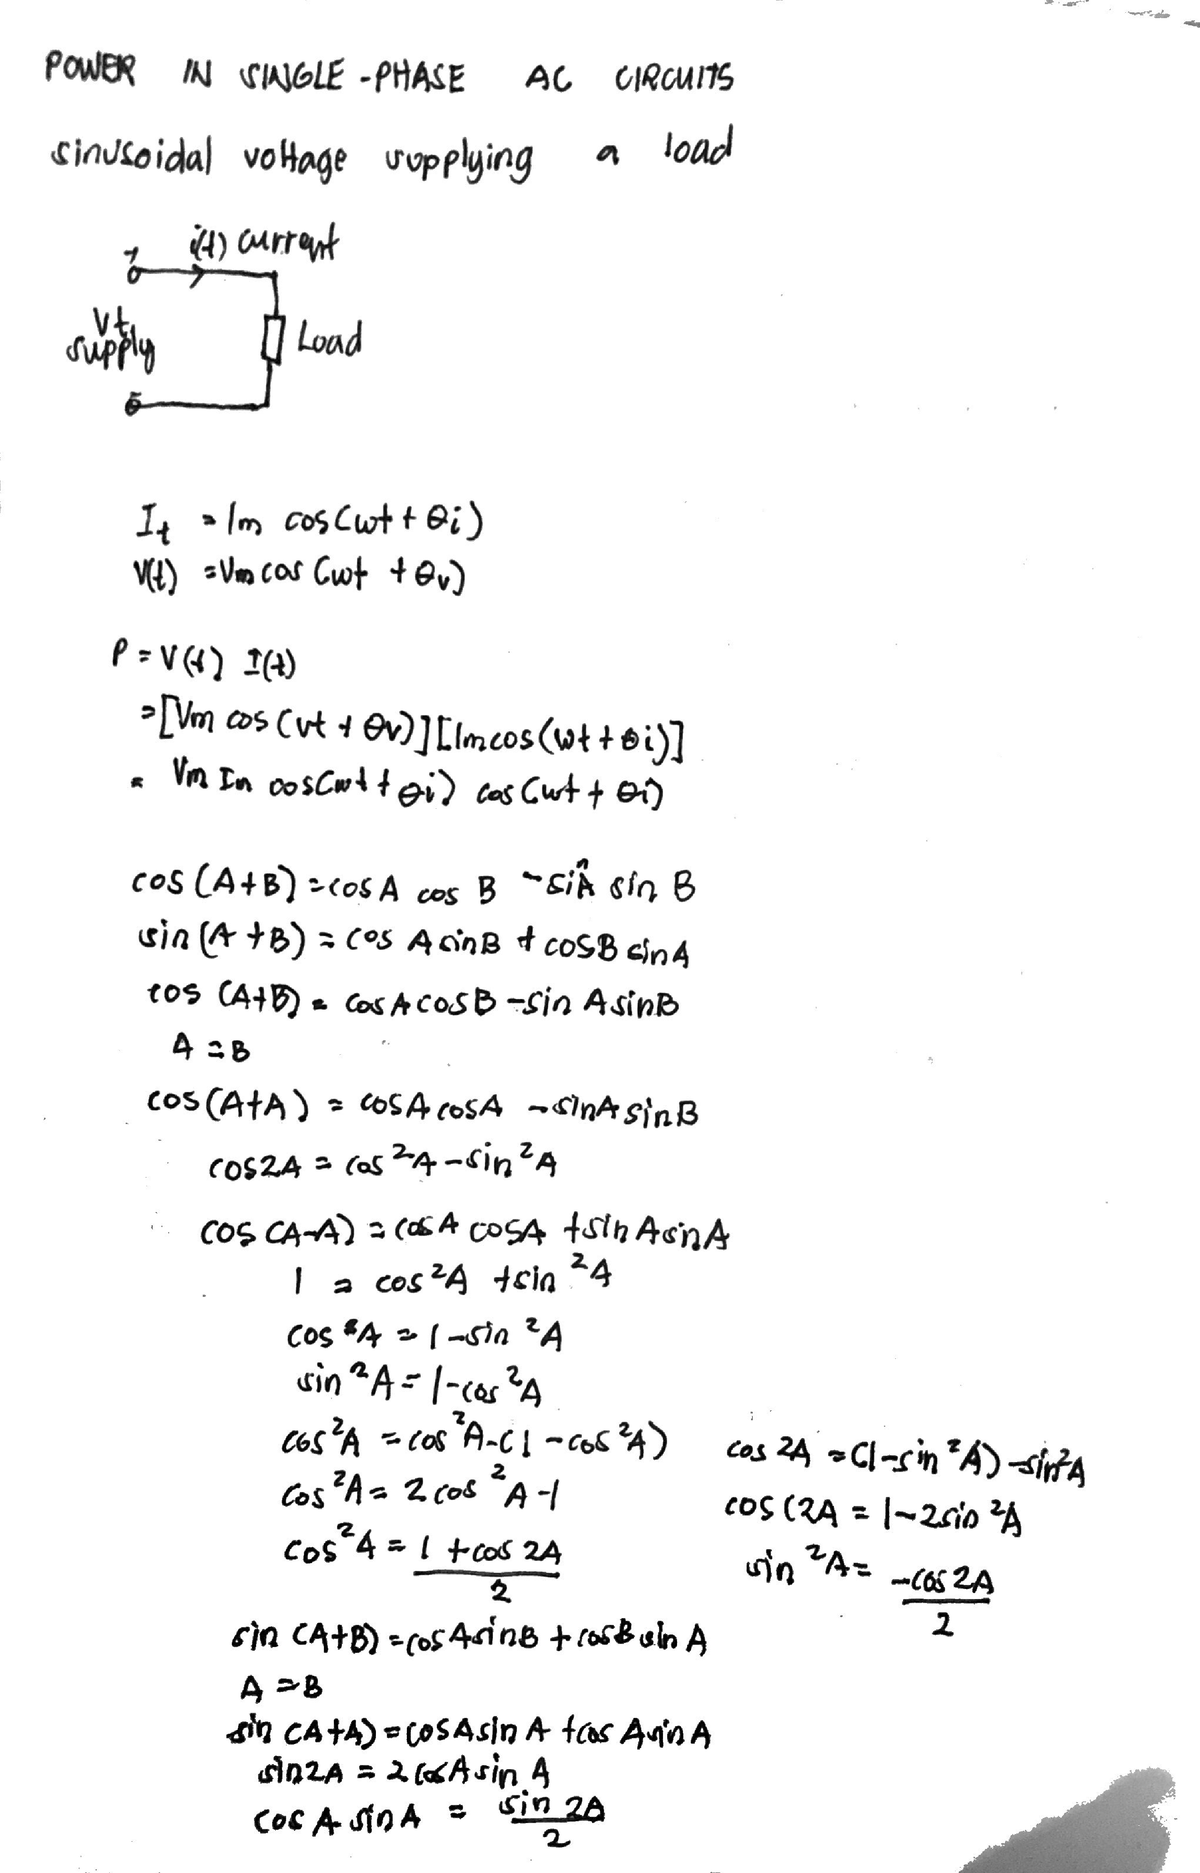 POWER IN SINGLE-PHASE AC CIRCUITS
sinusoidal voltage supplying a load
i(t) current
+
Vt
supply
Load
-
It = Im cos(wt + θi)
V(t) = Vm cos(wt + θv)
P = V(t) I(t)
= [Vm cos(vt + θv)][Im cos(wt + θi)]
= Vm Im cos(wt + θi) cos(wt + θi)
cos(A+B) = cos A cos B - sin A sin B
sin(A+B) = cos A sin B + cos B sin A
cos(A+B) = cos A cos B - sin A sin B
A = B
cos(A+A) = cos A cos A - sin A sin B
cos2A = cos²A - sin²A
cos(A-A) = cos A cos A + sin A sin A
1 = cos²A + sin²A
cos²A = 1 - sin²A
sin²A = 1 - cos²A
cos²A = cos²A - (1 - cos²A)
cos²A = 2cos²A - 1
cos²A = 1 + cos 2A / 2
cos 2A = (1 - sin²A) - sin²A
cos(2A = 1 - 2sin²A
sin²A = -cos 2A / 2
sin(A+B) = cos A sin B + cos B sin A
A = B
sin(A+A) = cos A sin A + cos A sin A
sin2A = 2 cos A sin A
cos A sin A = sin 2A / 2